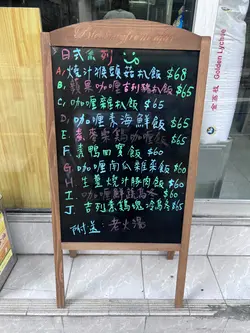 日式系列
A, 燒汁猴頭菇扒飯 $68
B, 蘋果咖喱吉列豬扒飯 $65
C, 咖喱雜扒飯 $65
D, 咖喱素海鮮飯 $65
E. 素鴨咖喱飯 $65
F. 素鴨四寶飯 $60
G. 咖喱南瓜雜菜飯 $60
H. 生薑燒汁豚肉飯 $60
I. 咖喱鮮蔬烏冬 $60
J. 吉列素雞塊冷烏冬 $65
附送: 老火湯
Golden Lychee
金荔枝